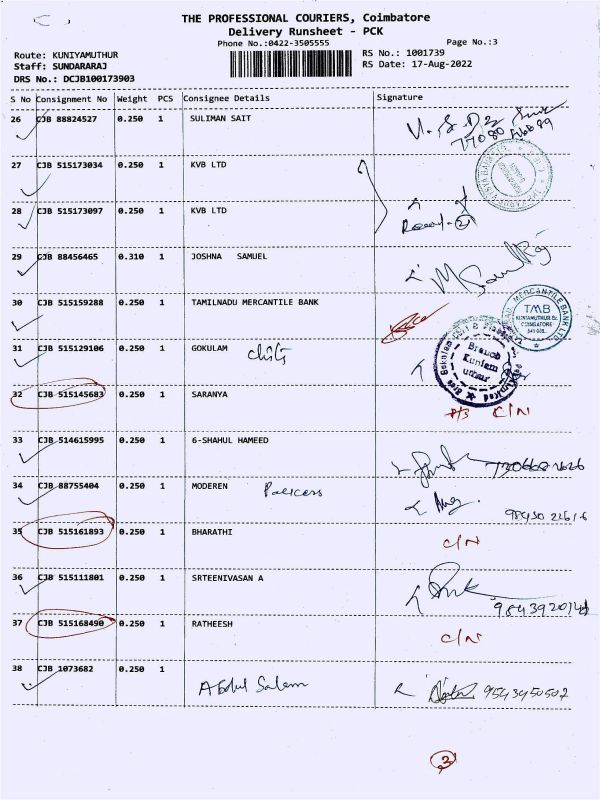 THE PROFESSIONAL COURIERS, Coimbatore
Delivery Runsheet - PCK
Phone No.:0422-3505555
Page No.:3
Route: KUNIYAMUTHUR
Staff: SUNDARARAJ
DRS No.: DCJB100173903
RS No.: 1001739
RS Date: 17-Aug-2022
S No Consignment No Weight PCS Consignee Details Signature
26 CJB 88824527 0.250 1 SULIMAN SAIT
27 CJB 515173034 0.250 1 KVB LTD
28 CJB 515173097 0.250 1 KVB LTD
29 CJB 88456465 0.310 1 JOSHNA SAMUEL
30 CJB 515159288 0.250 1 TAMILNADU MERCANTILE BANK
TMB
COIMBATORE
31 CJB 515129106 0.250 1 GOKULAM chits
Branch
32 CJB 515145683 0.250 1 SARANYA
C/N
33 CJB 514615995 0.250 1 6-SHAHUL HAMEED
34 CJB 88755404 0.250 1 MODEREN
35 CJB 515161893 0.250 1 BHARATHI C/N
36 CJB 515111801 0.250 1 SRTEENIVASAN A
37 CJB 515168490 0.250 1 RATHEESH C/N
38 CJB 1073682 0.250 1 Abdul Salem 9543450507
3